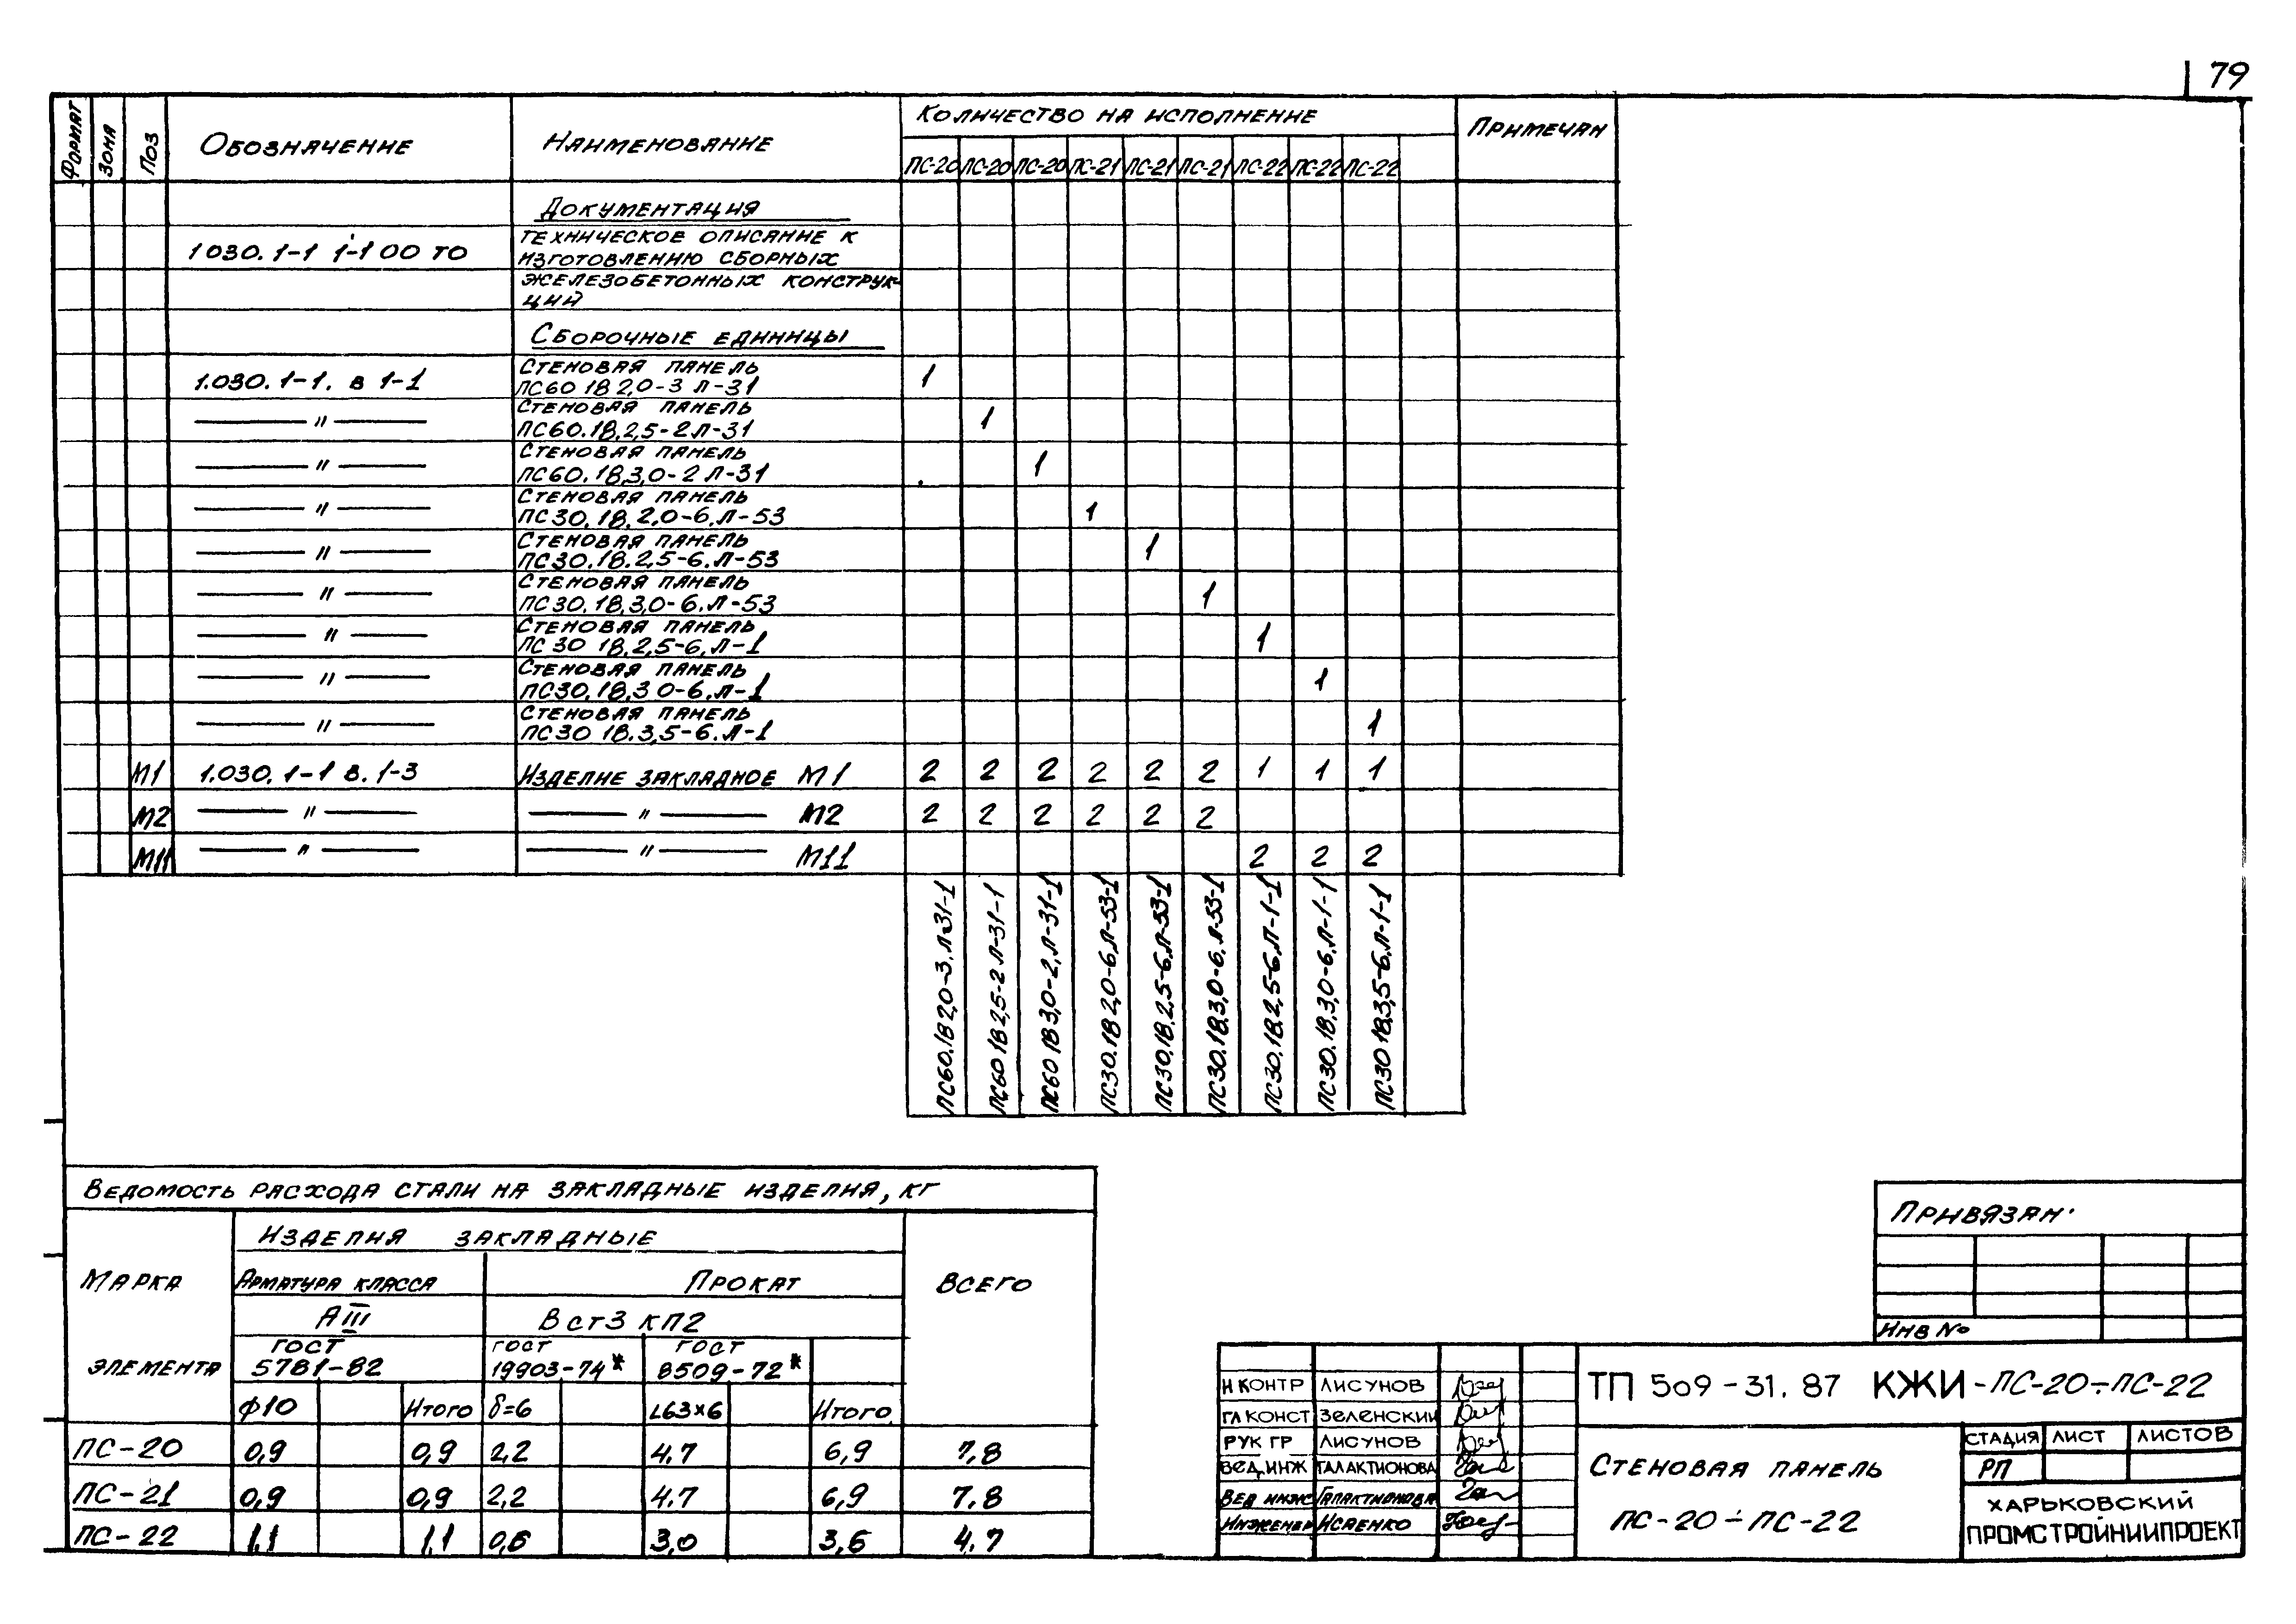 79
Формат Зона Поз Обозначение Наименование Количество на исполнение Примечан
ПС-20 ПС-20 ПС-20 ПС-21 ПС-21 ПС-21 ПС-22 ПС-22 ПС-22
Документация
1030.1-1 1-1 00 ТО Техническое описание к
изготовлению сборных
железобетонных конструк-
ций
Сборочные единицы
1.030.1-1. в 1-1 Стеновая панель
ПС60 18 2,0-3 Л-31 1
— " — Стеновая панель
ПС60.18.2,5-2Л-31 1
— " — Стеновая панель
ПС60.18.3,0-2 Л-31 1
— " — Стеновая панель
ПС30.18.2,0-6.Л-53 1
— " — Стеновая панель
ПС30.18.2,5-6.Л-53 1
— " — Стеновая панель
ПС30.18.3,0-6.Л-53 1
— " — Стеновая панель
ПС 30 18.2,5-6.Л-1 1
— " — Стеновая панель
ПС30.18.3 0-6.Л-1 1
— " — Стеновая панель
ПС30 18.3,5-6.Л-1 1
М1 1.030.1-1 в.1-3 Изделие закладное М1 2 2 2 2 2 2 1 1 1
М2 — " — — " — М2 2 2 2 2 2 2
М11 — " — — " — М11 2 2 2
ПС60.18 2,0-3.Л-31-1
ПС60 18 2,5-2 Л-31-1
ПС60 18 3,0-2.Л-31-1
ПС30.18 2,0-6.Л-53-1
ПС30.18.2,5-6.Л-53-1
ПС30.18.3,0-6.Л-53-1
ПС30.18.2,5-6.Л-1-1
ПС30.18.3,0-6.Л-1-1
ПС30 18.3,5-6.Л-1-1
Ведомость расхода стали на закладные изделия, кг
Марка
элемента
Изделия закладные
Всего
Арматура класса Прокат
АIII Вст3 кп2
ГОСТ
5781-82
ГОСТ
19903-74*
ГОСТ
8509-72*
ф10 Итого δ=6 L63×6 Итого
ПС-20 0,9 0,9 2,2 4,7 6,9 7,8
ПС-21 0,9 0,9 2,2 4.7 6,9 7,8
ПС-22 1,1 1,1 0,6 3,0 3,6 4,7
Привязан
Инв №
Н контр Лисунов
Гл конст Зеленский
Рук гр Лисунов
Вед.инж Галактионова
Вед инж Галактионова
Инженер Исаенко
ТП 509-31.87 КЖИ-ПС-20÷ПС-22
Стеновая панель
ПС-20÷ПС-22
Стадия Лист Листов
РП
Харьковский
ПРОМСТРОЙНИИПРОЕКТ